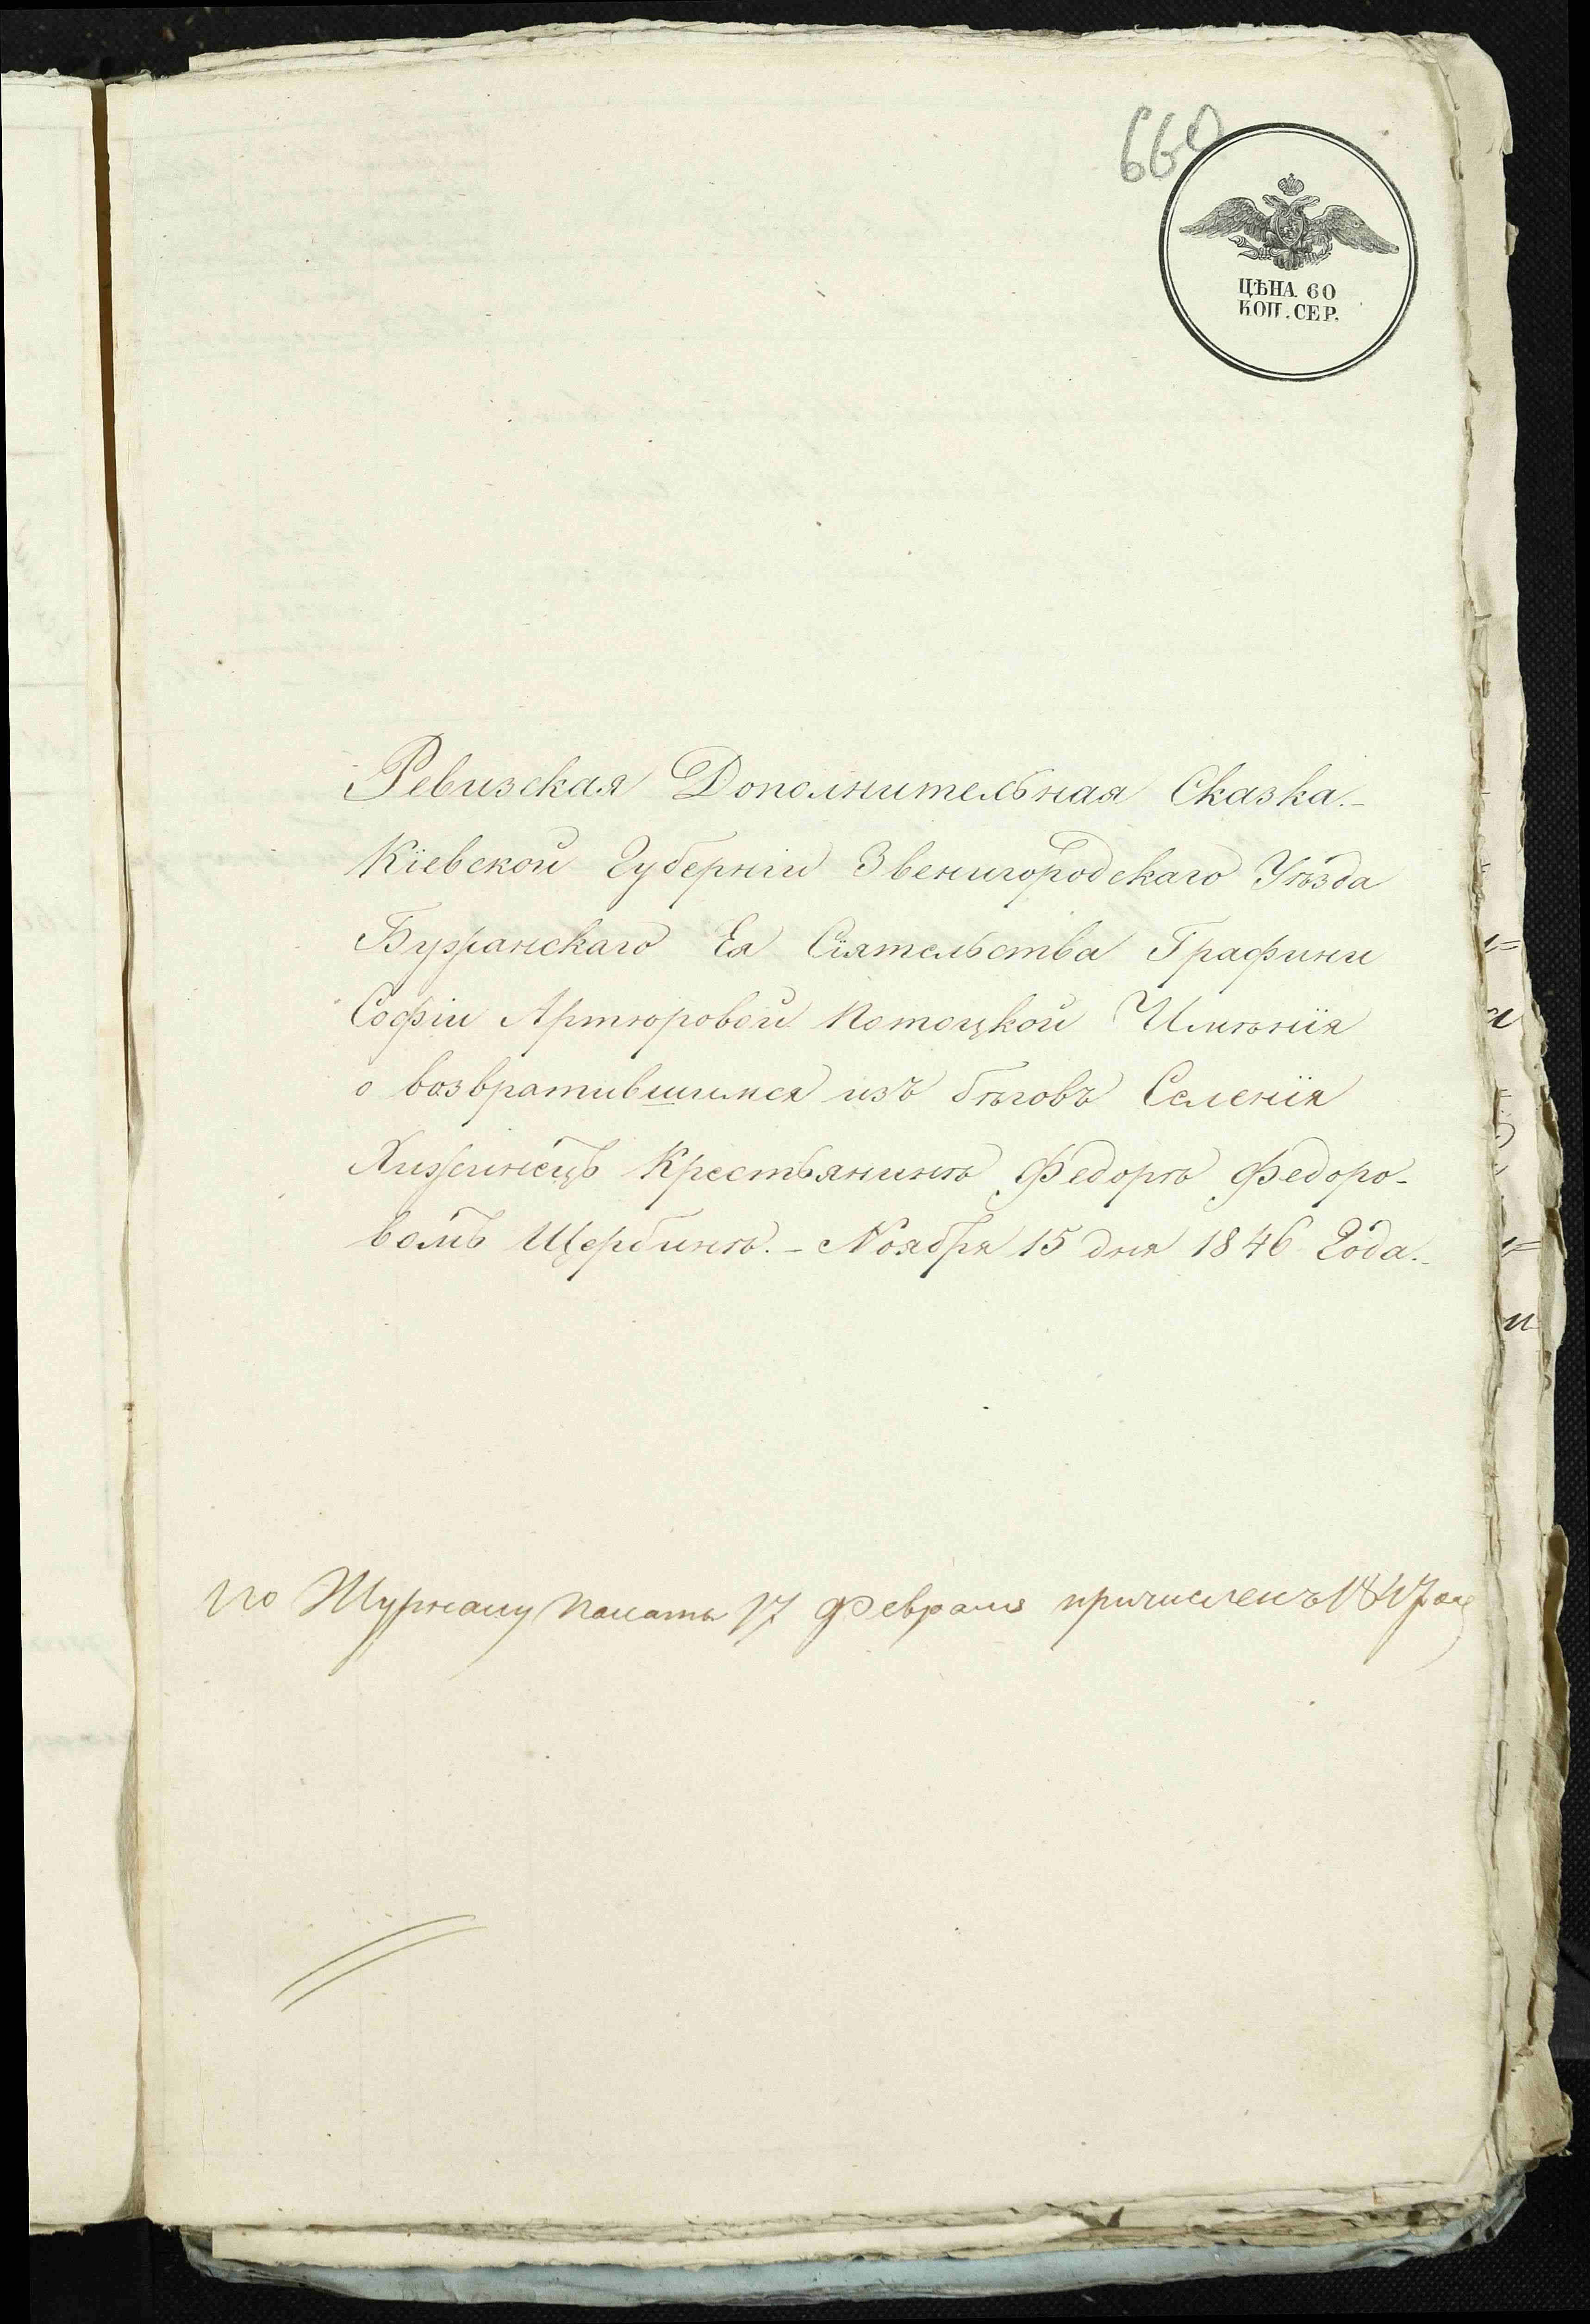 660
ЦѢНА 60
КОП. СЕР.
Ревизская Дополнительная Сказка.-
Кіевской Губерніи Звенигородскаго Уѣзда
Бужанскаго Ея Сіятельства Графини
Софіи Артюровой Потоцкой Имѣнія
о возвратившимся изъ бѣговъ Селенія
Хижинецъ Крестьянинѣ Федорѣ Федоро-
вомъ Щербинѣ. - Ноября 15 дня 1846 Года.-
По Журналу Палаты 17 Февраля причисленъ 1847